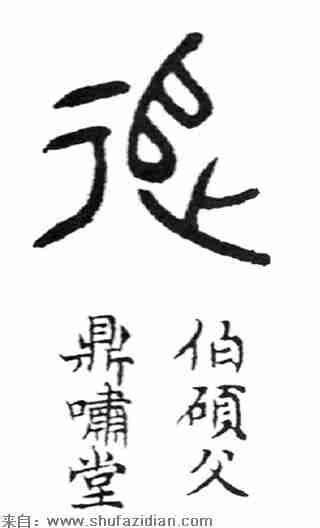 追
伯碩父
鼎嘯堂
来自：www.shufazidian.com